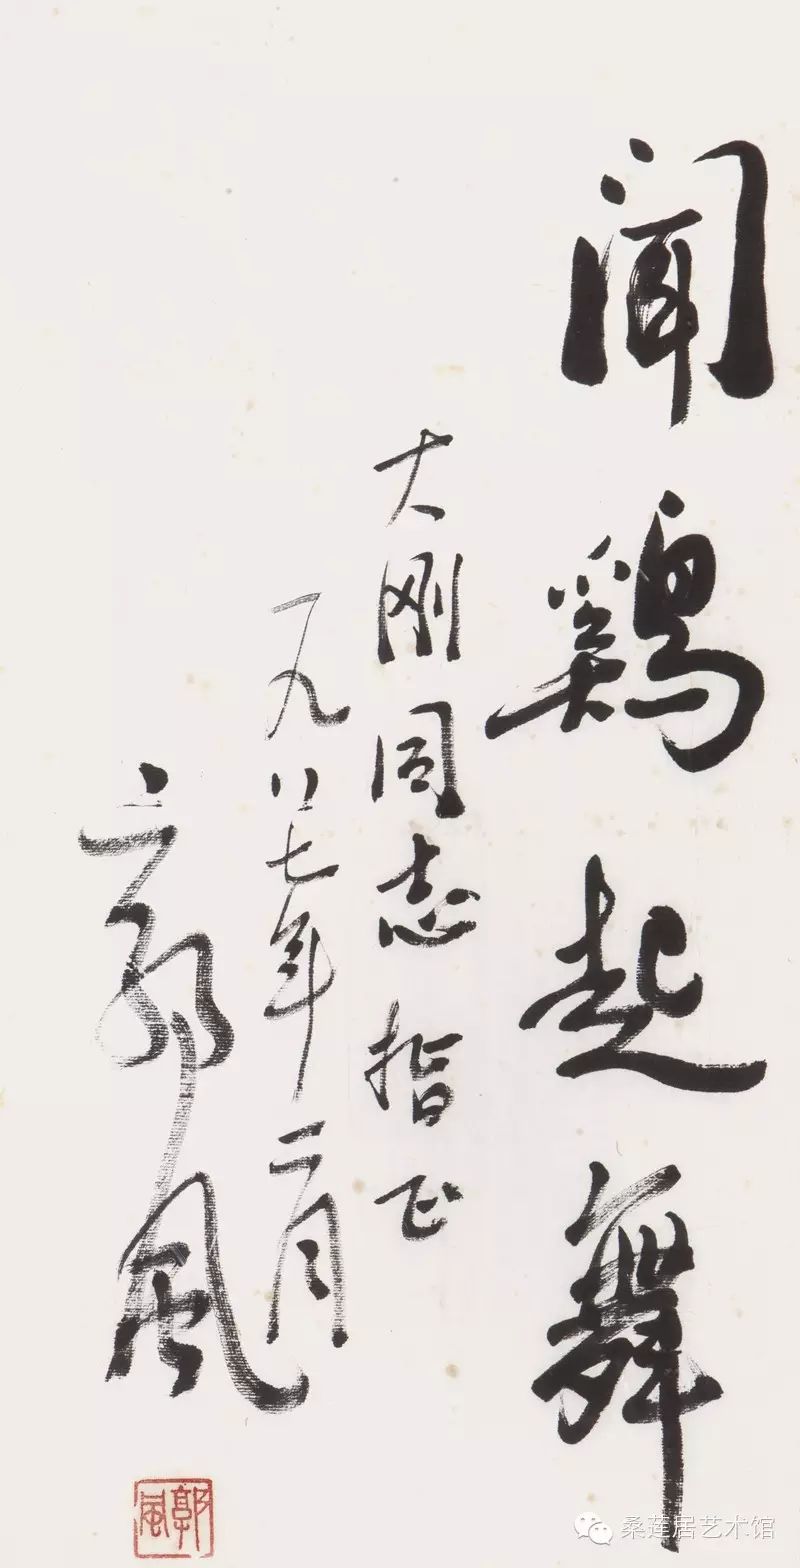 闻鸡起舞
大刚同志指正
一九八七年二月
郭风
郭風
桑莲居艺术馆